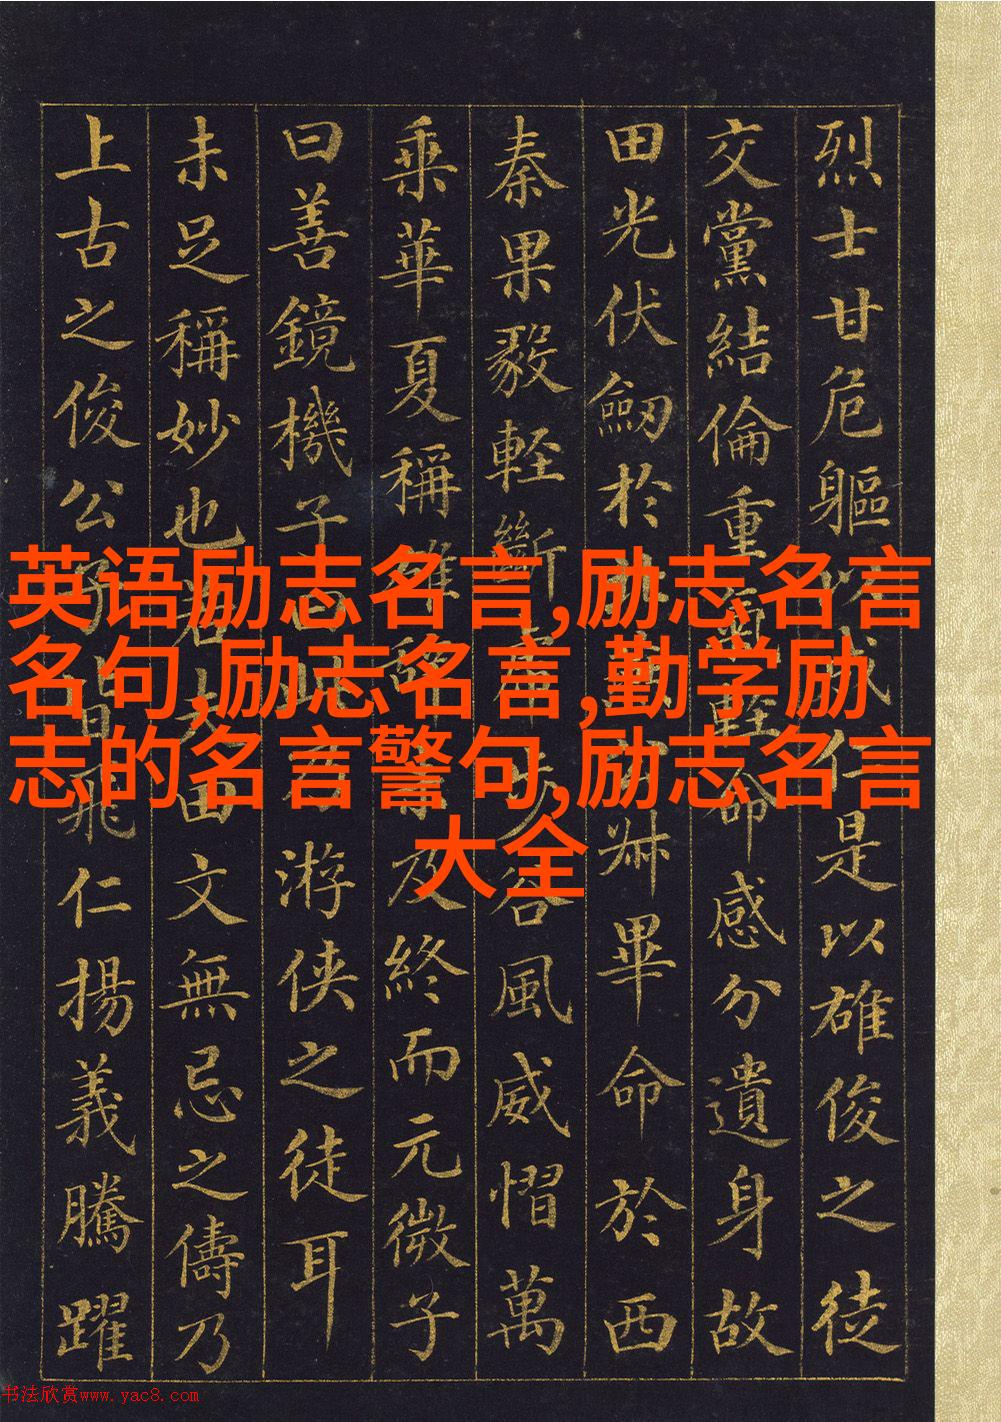 烈士甘危軀以成仁是以雄俊之徒
交黨結倫重氣輕命感分遺身故
田光伏劒於北燕公叔畢命於西
秦果毅輕斷虎步谷風威慴萬
乘華夏稱雄辭未及終而元微子
曰善鏡機子曰此乃游俠之徒耳
未足稱妙也若夫田文無忌之儔乃
上古之俊公子也皆飛仁揚義騰躍
英语励志名言,励志名言
名句,励志名言,勤学励
志的名言警句,励志名言
大全
书法欣赏www.yac8.com